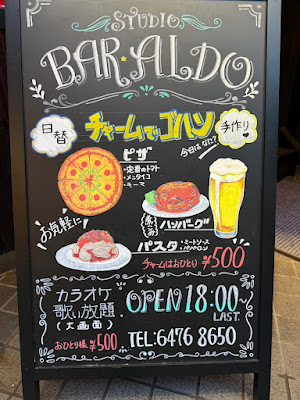 STUDIO
BAR★ALDO
日替
チャームでゴハン
手作り
今日はなに？
ピザ
・定番のトマト
・メンタイコ
・キーマ
ハンバーグ
お気軽に
パスタ
・ミートソース
・ペペロン
チャームはおひとり ¥500
カラオケ
歌い放題
(大画面)
おひとり様 ¥500
OPEN 18:00~
LAST.
TEL:6476 8650